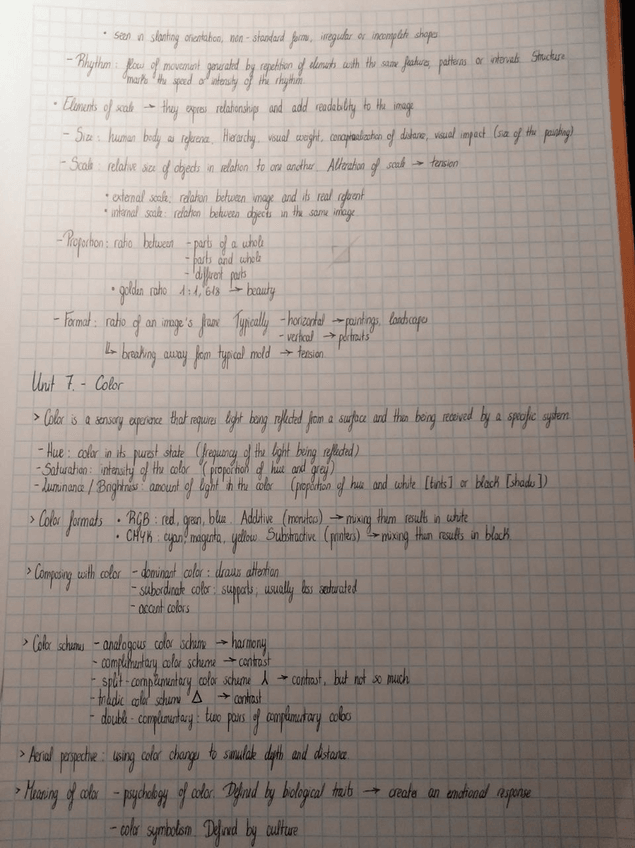 • seen in slanting orientation, non-standard forms, irregular or incomplete shapes
- Rhythm: flow of movement generated by repetition of elements with the same features, patterns or intervals. Structure
marks the speed or intensity of the rhythm.
• Elements of scale → they express relationships and add readability to the image
- Size: human body as reference. Hierarchy, visual weight, conceptualization of distance, visual impact (size of the painting)
- Scale: relative size of objects in relation to one another. Alteration of scale → tension
• external scale: relation between image and its real referent
• internal scale: relation between objects in the same image
- Proportion: ratio between - parts of a whole
- parts and whole
- different parts
• golden ratio 1:1,618 → beauty
- Format: ratio of an image's frame. Typically - horizontal → paintings, landscapes
- vertical → portraits
↳ breaking away from typical mold → tension
Unit 7. - Color
> Color is a sensory experience that requires light being reflected from a surface and then being received by a specific system.
- Hue: color in its purest state (frequency of the light being reflected)
- Saturation: intensity of the color (proportion of hue and grey)
- Luminance / Brightness: amount of light in the color (proportion of hue and white [tints] or black [shades])
> Color formats • RGB: red, green, blue. Additive (monitors) → mixing them results in white
• CMYK: cyan, magenta, yellow. Substractive (printers) ↳ mixing them results in black
> Composing with color - dominant color: draws attention
- subordinate color: supports, usually less saturated
- accent colors
> Color schemes - analogous color scheme → harmony
- complimentary color scheme → contrast
- split-complementary color scheme ⅄ → contrast, but not so much
- triadic color scheme Δ → contrast
- double-complimentary: two pairs of complimentary colors
> Aerial perspective: using color changes to simulate depth and distance
> Meaning of color - psychology of color. Defined by biological traits → creates an emotional response
- color symbolism. Defined by culture